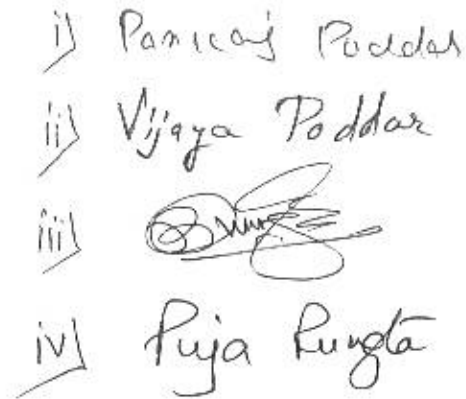 i) Pankaj Poddar
ii) Vijaya Poddar
iii)
iv) Puja Rungta